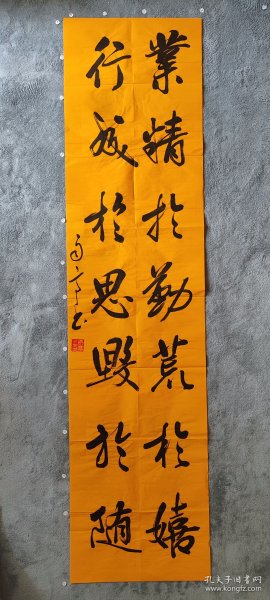 業精於勤荒於嬉
行成於思毀於随
孔夫子旧书网